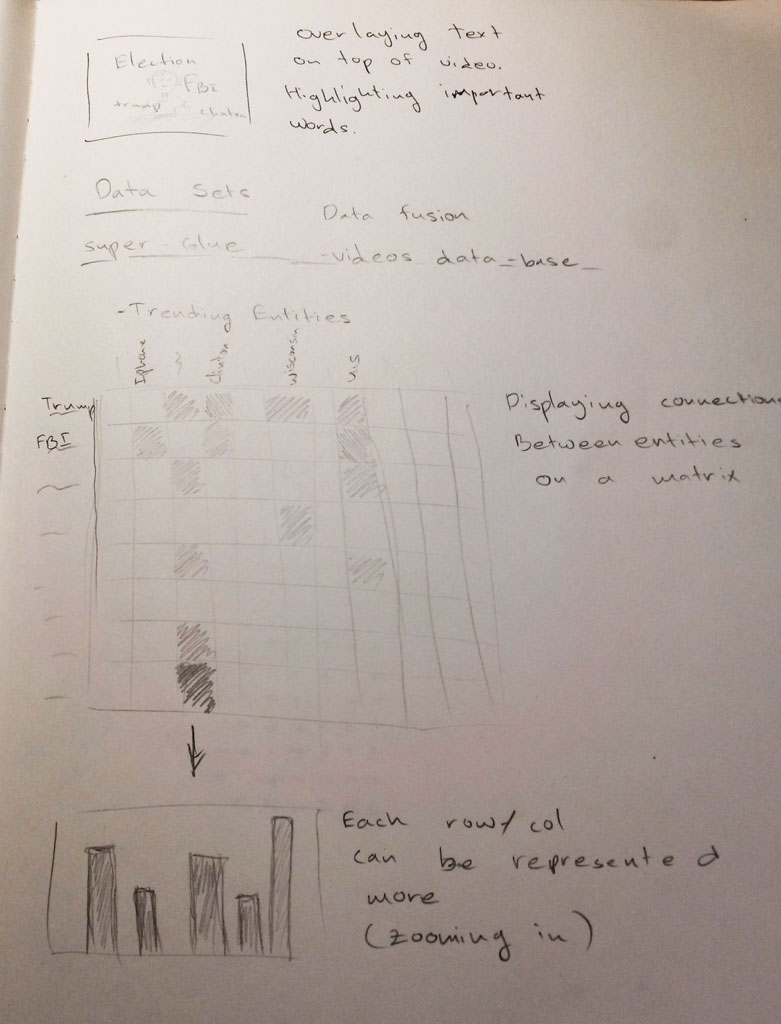 Election
FBI
trump
clinton
overlaying text
on top of video.
Highlighting important
words.
Data Sets
super-Glue
Data fusion
-videos data-base
-Trending Entities
Iphone
clinton
wisconsin
Trump
FBI
Displaying connection
Between entities
on a matrix
Each row/col
can be represented
more
(zooming in)